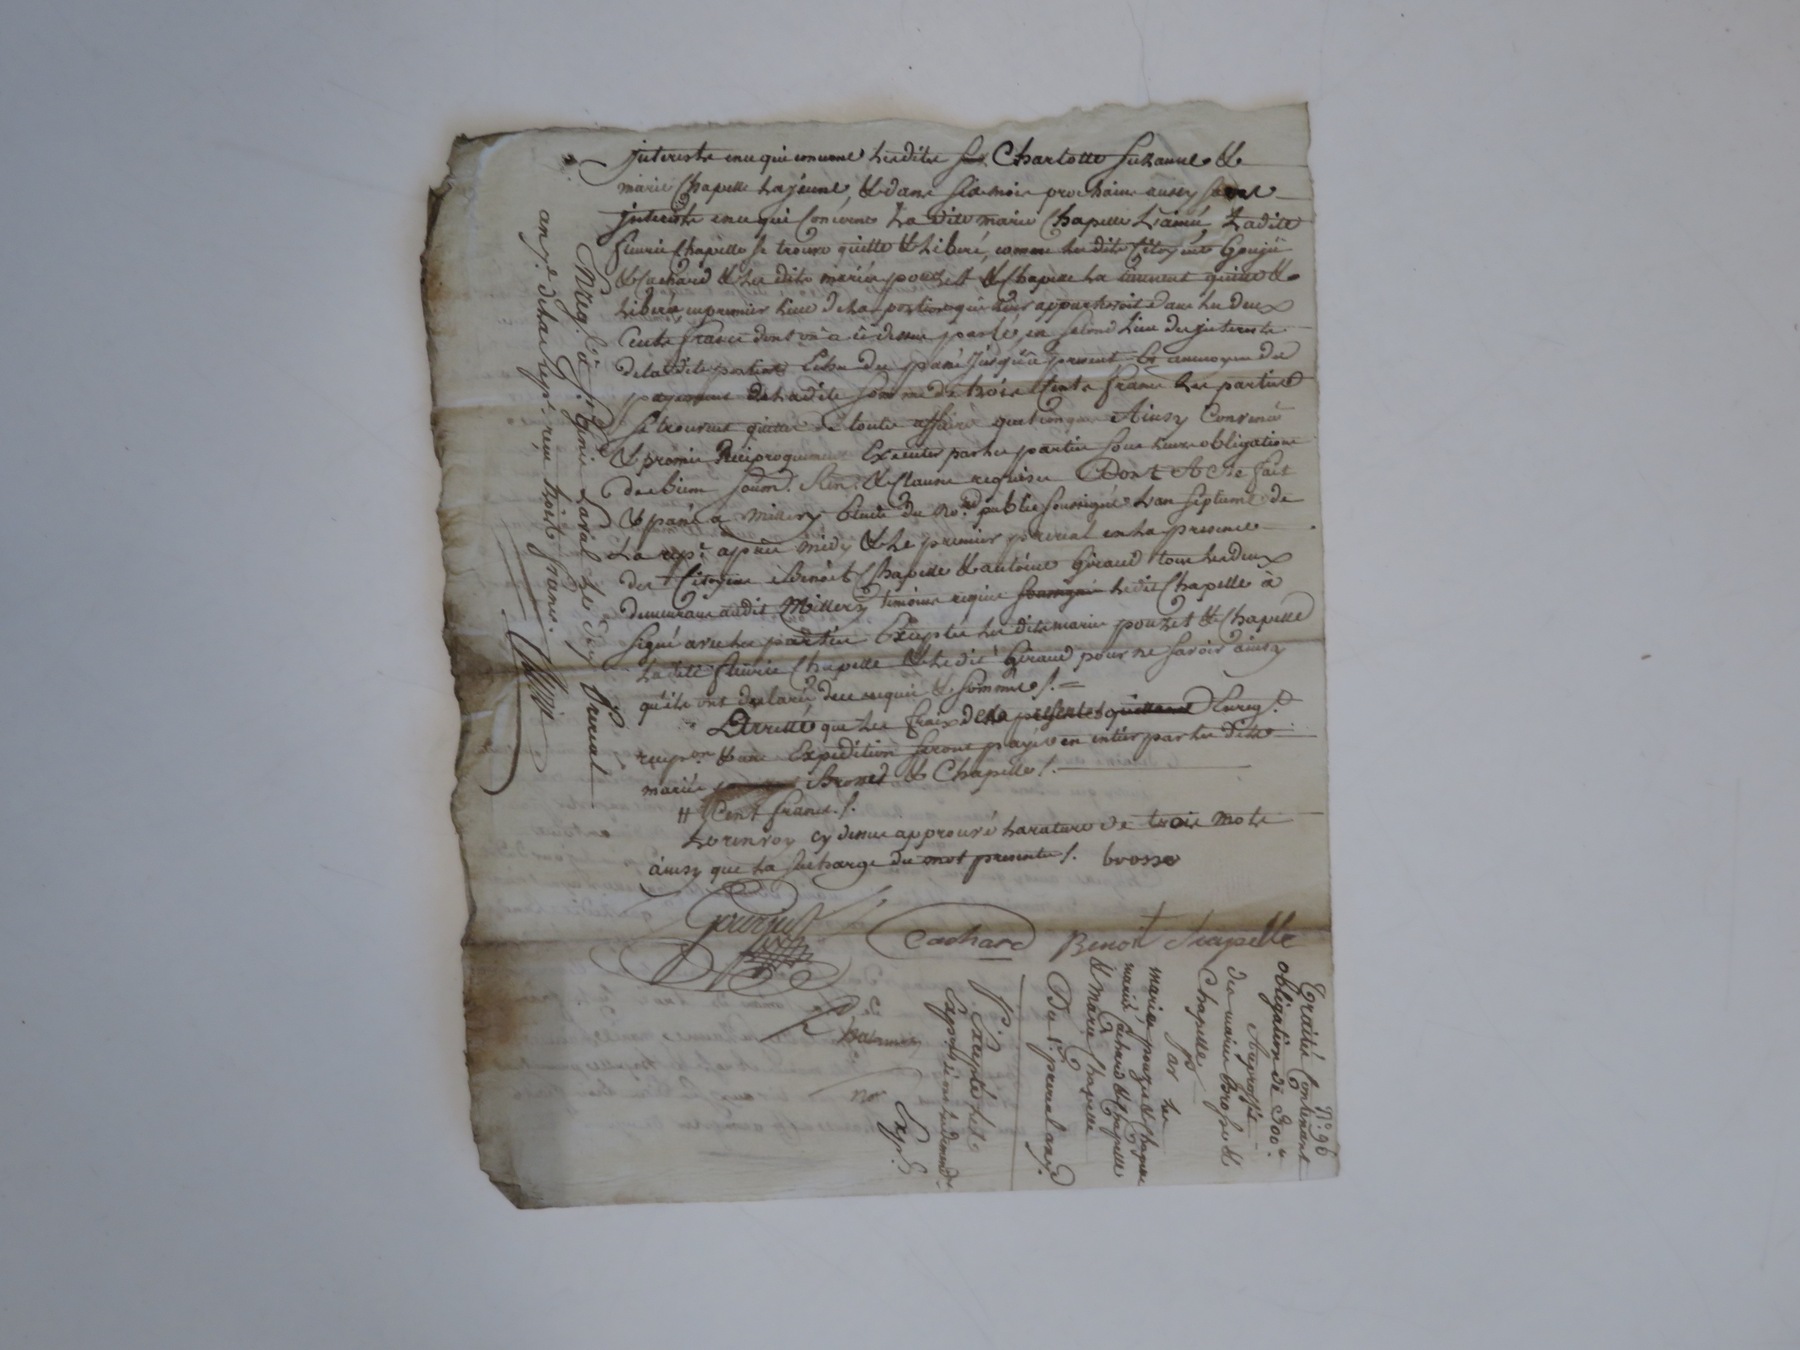 jnterests en ce qui concerne lesdites Charlotte Suzanne &
marie Chapelle la jeune, & dans six mois prochains aussy sans
jnterests en ce qui concerne la dite marie Chapelle L'ainée, Ladite
fleurie Chapelle se trouve quitte & liberé, comme les dits Citoyens Gouju
& Cachard & les dits mariés pouzet & Chapelle la tiennent quitte &
liberée, en premier lieu de la portion qui leur appartenoit dans les deux
Cents francs dont on a cidessus parlé, en second lieu des jnterests
de ladite portion Echu du passé jusqu'a present & au moyen du
payement de ladite somme de trois Cents francs les parties
se trouvent quittes de toute affaire quelconque Ainsy Convenu
& promis Reciproquement Executer par les parties sous leurs obligations
de biens soum. Ren. & Clauses requises Dont Acte fait
& passé a Millery Etude du No.re public soussigné L'an septieme de
La rep.e après midy & le premier prereal en la presence
des Citoyens Benoit Chapelle & antoine Giraud tous les deux
demeurans audit Millery temoins requis ledit Chapelle à
signé avec les parties Excepté les dits mariés pouzet & Chapelle
la dite fleurie Chapelle & le dit Giraud pour ne savoir ainsy
qu'ils ont declaré de ce enquis & sommés /. =
que les fraix des presentes Enreg.t
& une Expedition seront payés en entier par les dits
mariés Brossed & Chapelle /.
# Cent francs /.
Le renvoy cy dessus approuvé la rature de trois mots
ainsy que la surcharge du mot presentes /. brosse
Cachard Benoit Chapelle
no.re
Enreg. à S.t Genis Laval le prereal
an 7.e de la rep.e reçu trois francs.
N.o 96
Traité Contenant
obligation de 300 #
Au proffit
des mariés Brosse &
Chapelle
par les
mariés pouzet & Chapelle
mariés Cachard & Chapelle
& marie Chapelle
Du 1.er prereal an 7.e